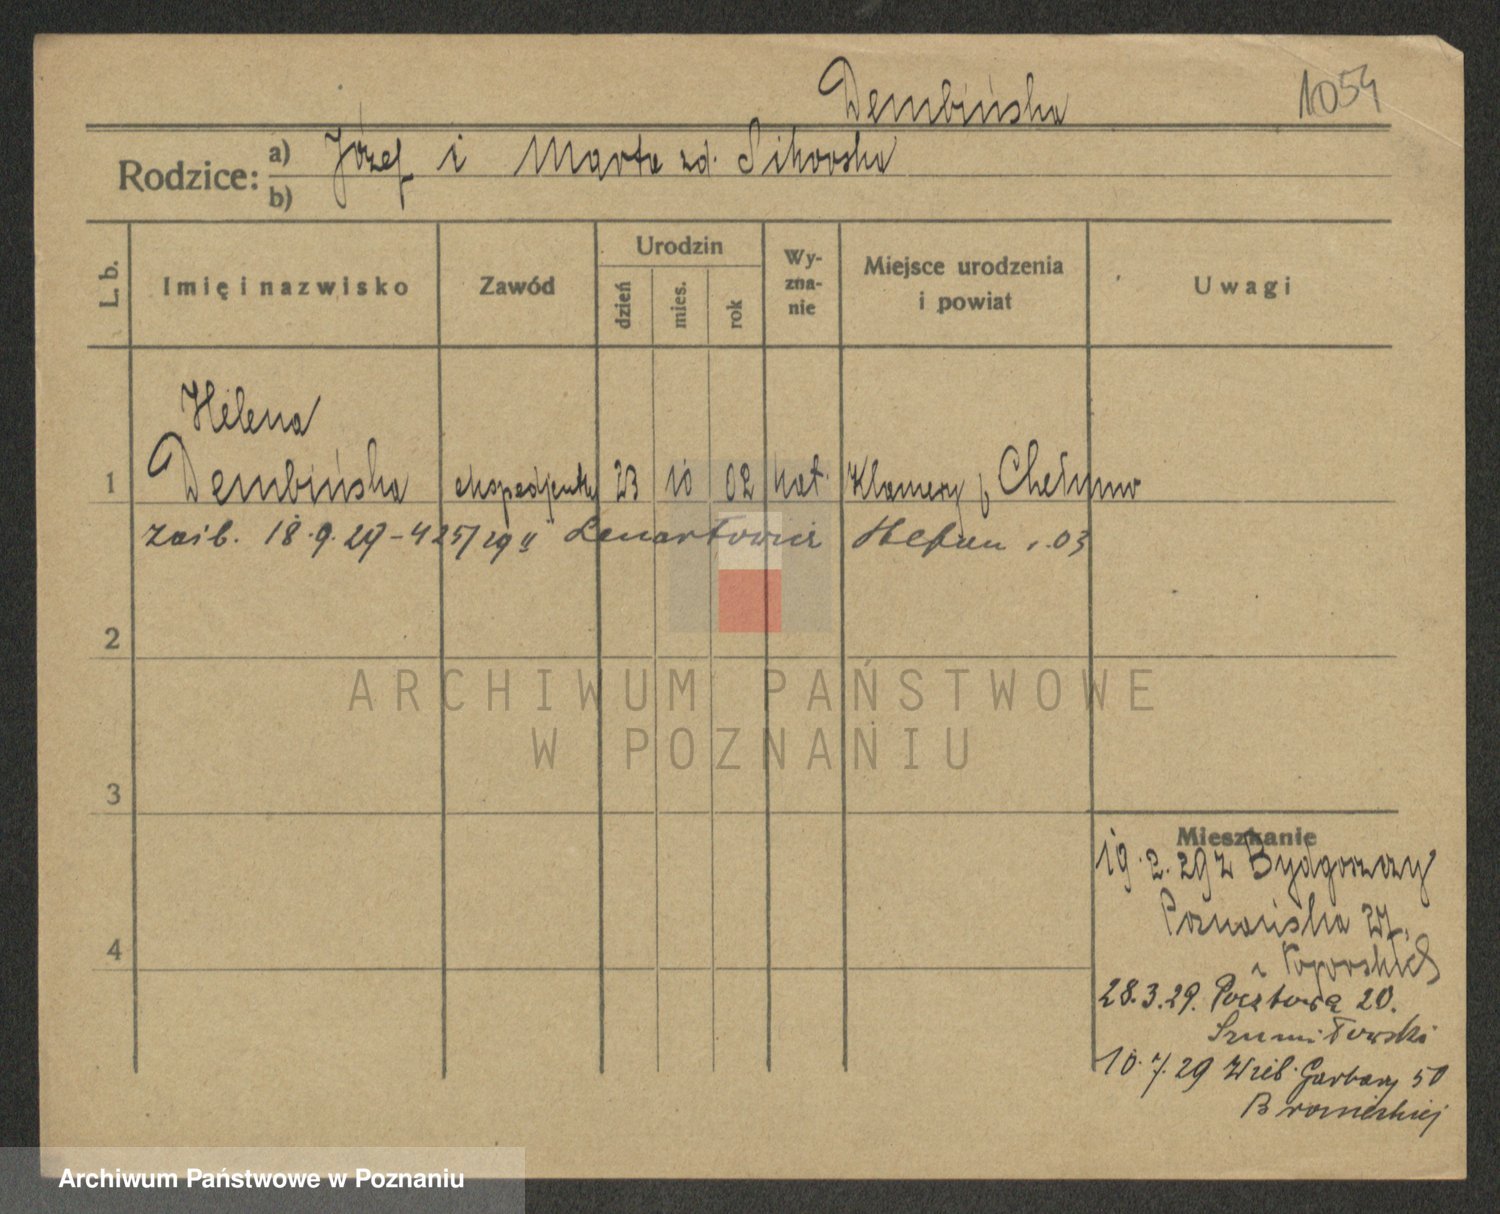 Dembińska 1054
Rodzice: a) Józef i Marta zd. Sikorska
b)
L. b. Imię i nazwisko Zawód Urodzin dzień mies. rok Wyzna-nie Miejsce urodzenia i powiat Uwagi
Helena
1 Dembińska ekspedjentka 23 10 02 kat. Klamery p. Chełmno
zaśb. 18.9.29 - 425/29 II Lenartowicz Stefan 03
2
ARCHIWUM PAŃSTWOWE
W POZNANIU
3
Mieszkanie
19.2.29 z Bydgoszczy
Poznańska
4
28.3.29. Pocztowa 20.
Szumiłowski
10.7.29 Garbary 50
Archiwum Państwowe w Poznaniu